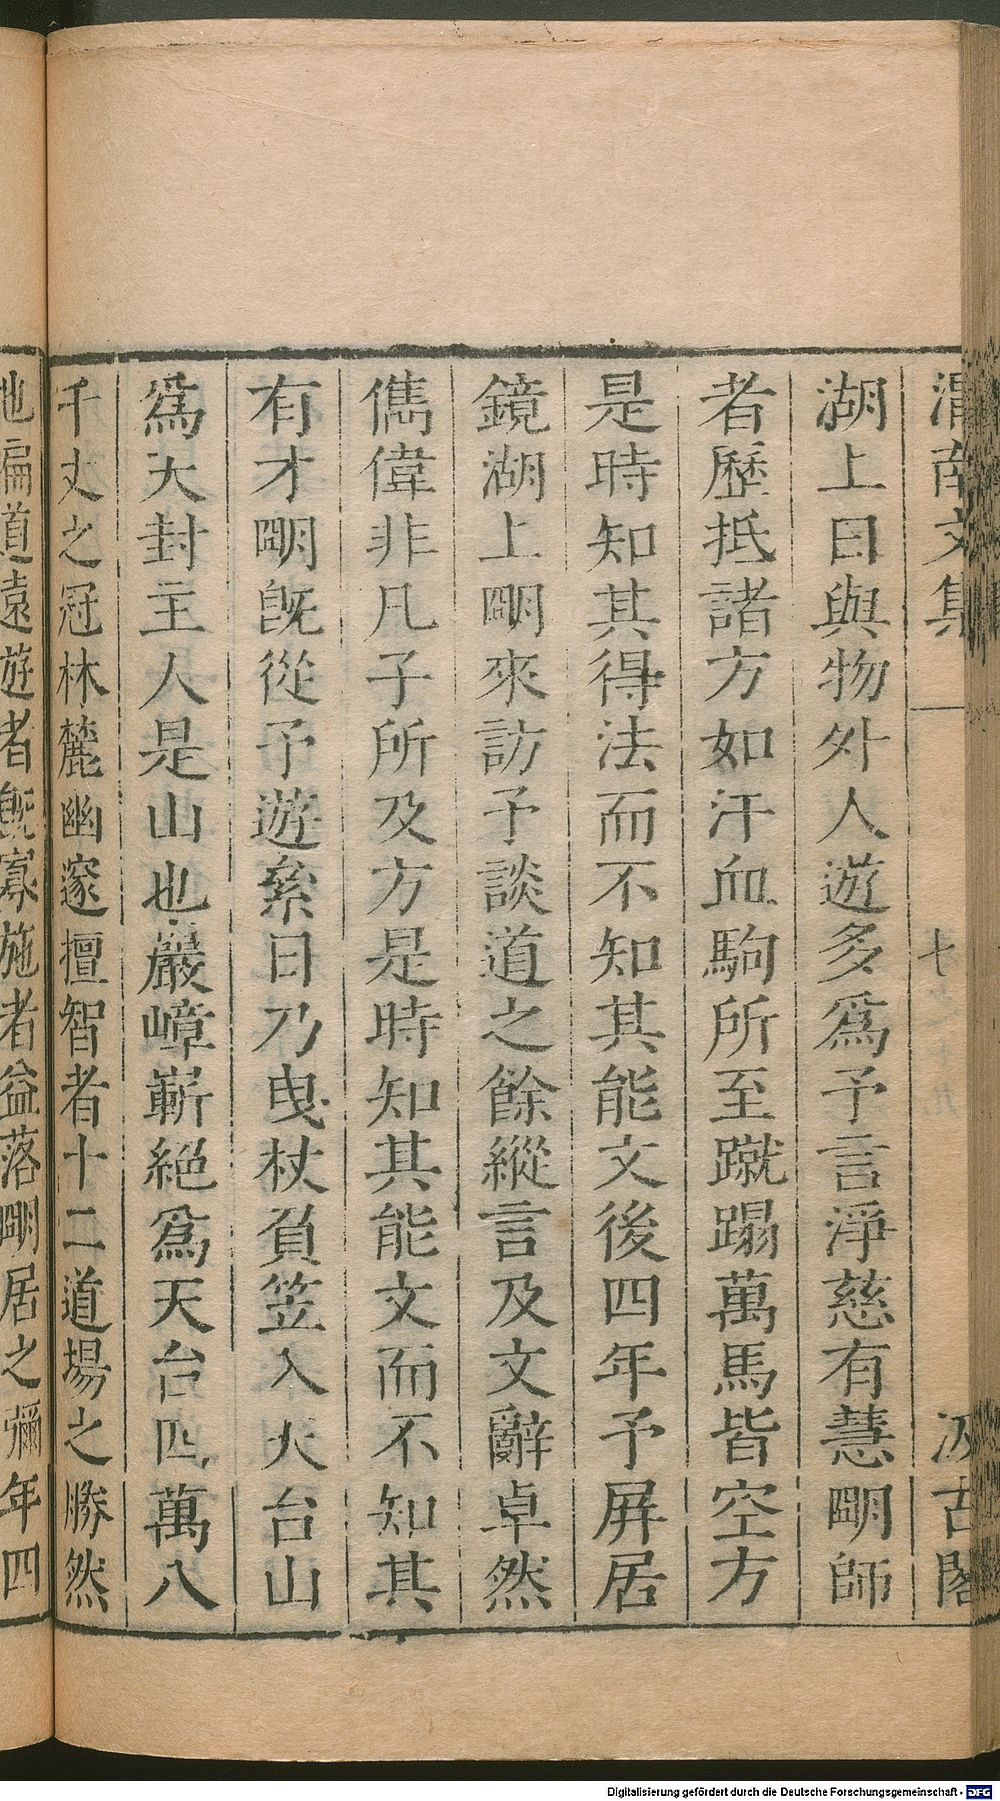 渭南文集 汲古閣
湖上日與物外人遊多爲予言淨慈有慧朙師
者歷抵諸方如汗血駒所至蹴蹋萬馬皆空方
是時知其得法而不知其能文後四年予屏居
鏡湖上朙來訪予談道之餘縱言及文辭卓然
儁偉非凡子所及方是時知其能文而不知其
有才朙旣從予遊絫日乃曳杖負笠入天台山
爲大封主人是山也巖嶂嶄絕爲天台四萬八
千丈之冠林麓幽邃擅智者十二道場之勝然
地偏道遠遊者旣寡施者益落朙居之彌年四
Digitalisierung gefördert durch die Deutsche Forschungsgemeinschaft - DFG